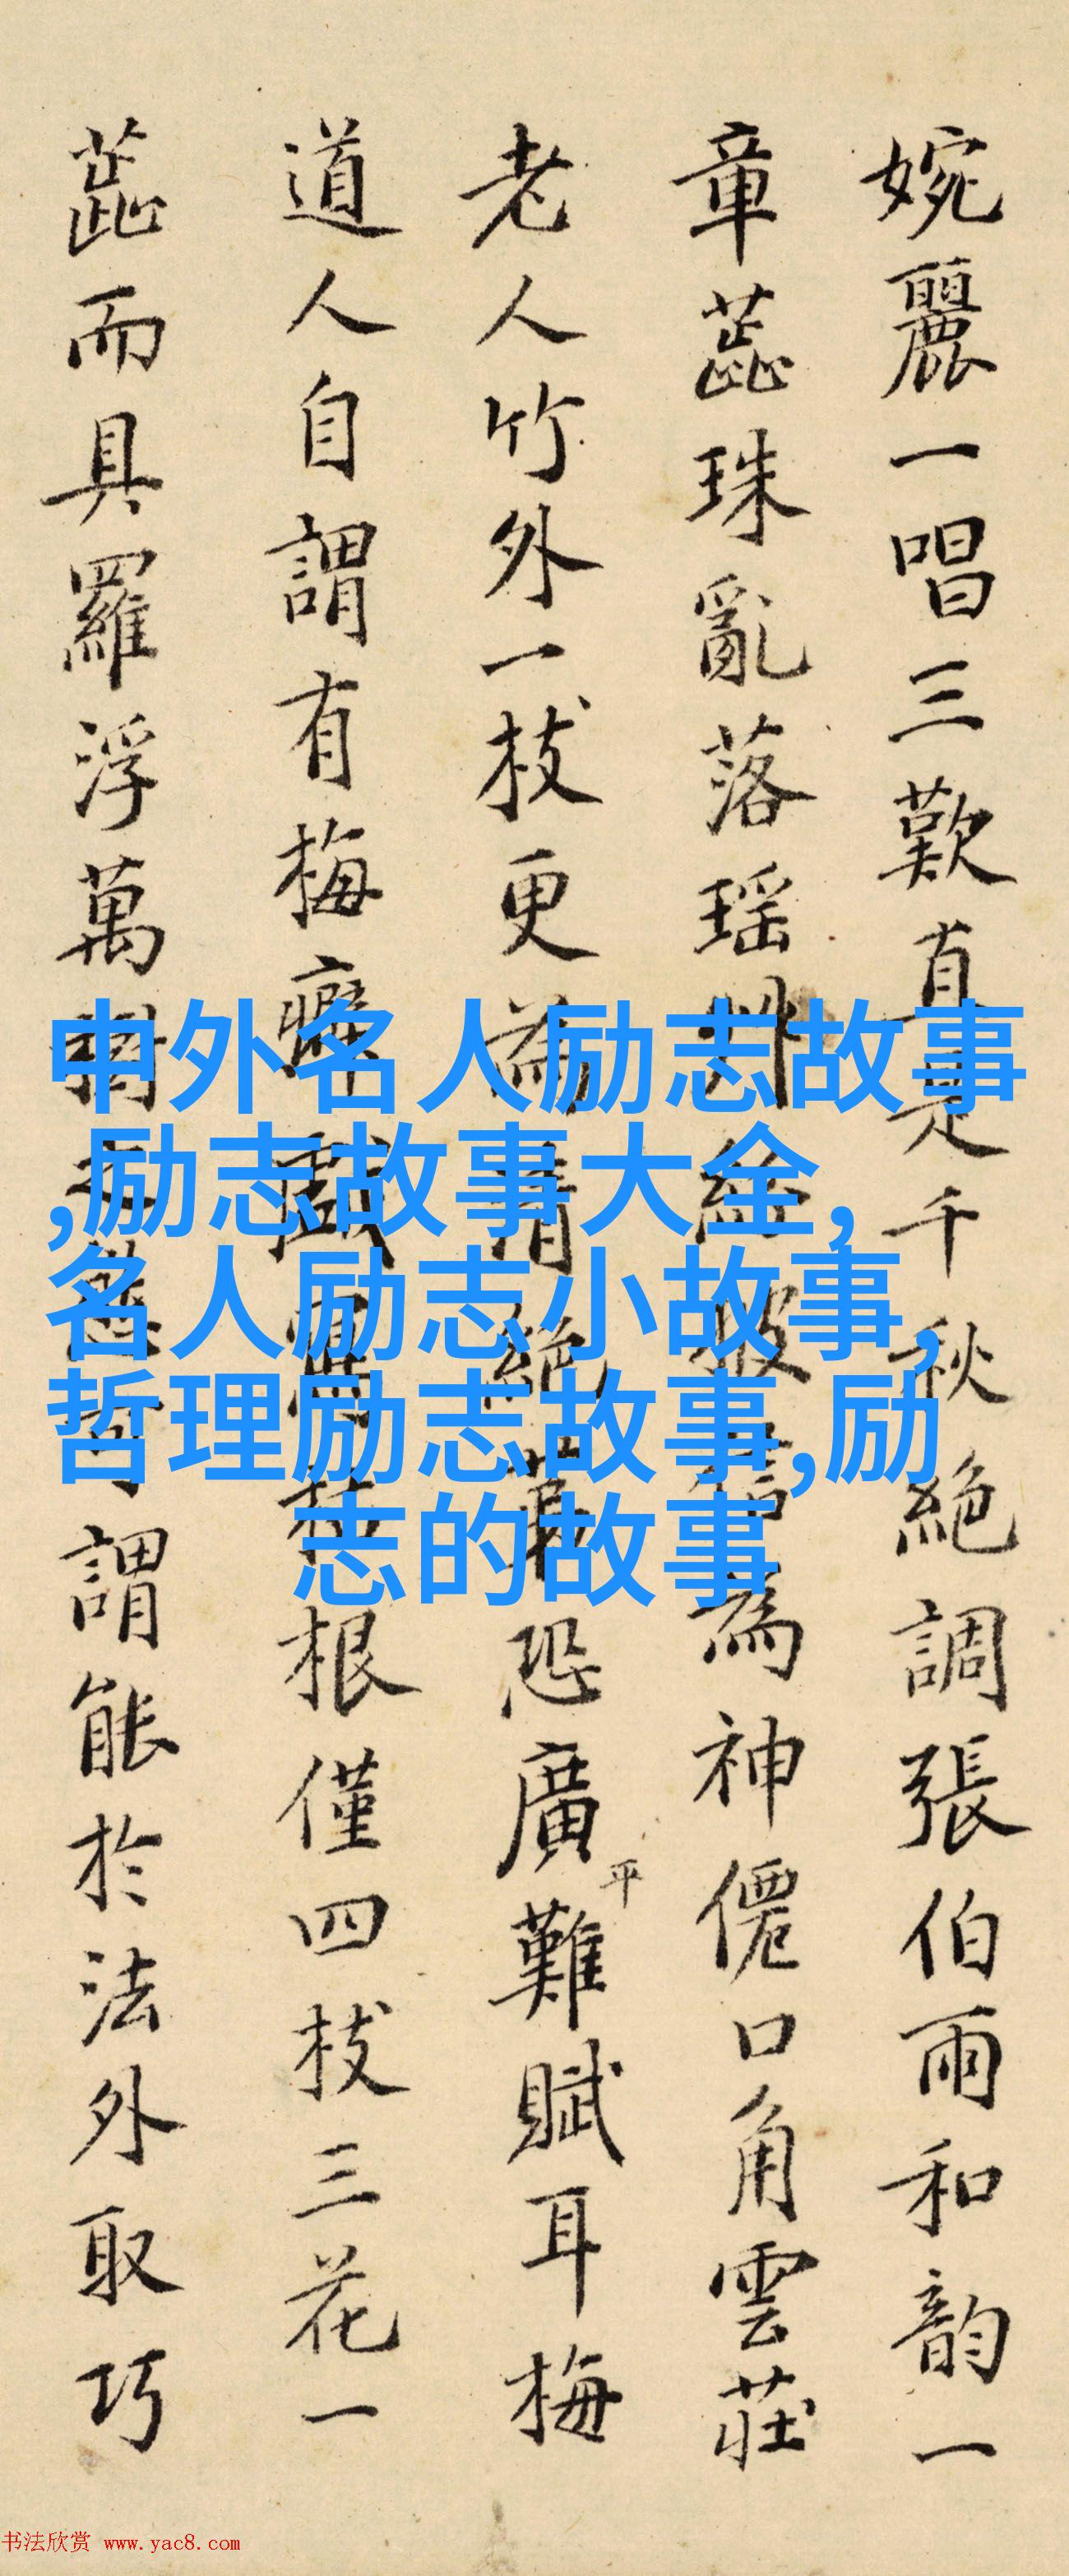 婉麗一唱三歎直是千秋絕調張伯雨和韵一
章蕊珠亂落瑶
為神僊口角雲莊
老人竹外一枝更為清絕
恐廣平難賦耳梅
道人自謂有梅癖
根僅四枝三花一
蕊而具羅浮萬樹
謂能於法外取巧
中外名人励志故事
,励志故事大全,
名人励志小故事,
哲理励志故事,励
志的故事
书法欣赏 www.yac8.com